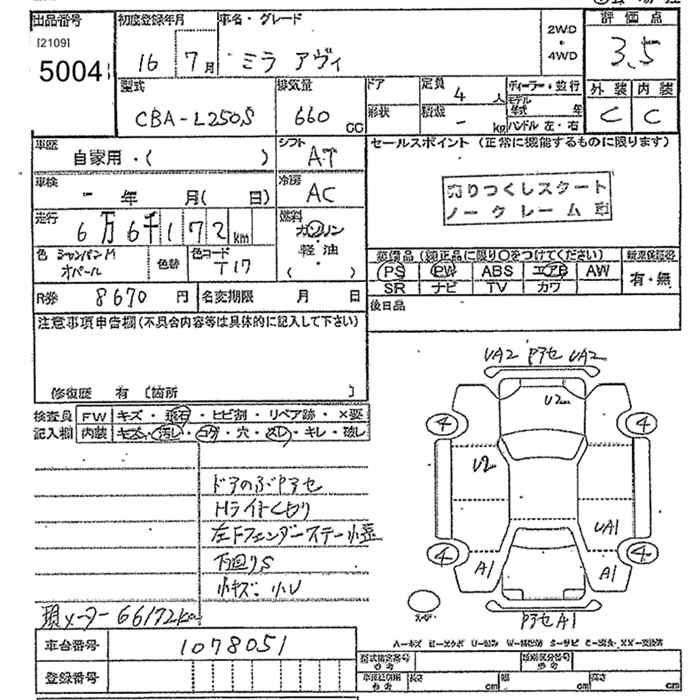 出品番号
[2109]
5004
初度登録年月
16 7月
車名・グレード
ミラ アヴィ
2WD
・
4WD
評価点
3.5
型式
CBA-L250S
排気量
660
CC
ドア
形状
定員
4 人
積載
- kg
ディーラー・並行
モデル年式 年
ハンドル 左・右
外装 内装
C C
車歴
自家用・( )
シフト
AT
セールスポイント (正常に機能するものに限ります)
売りつくしスタート
ノークレーム
車検
- 年 月( 日)
冷房
AC
走行
6万6千172km
燃料
ガソリン
・
軽油
( )
色 シャンパンM
オパール
色替
色コード
T17
装備品 (純正品に限り○をつけてください)
PS PW ABS エアB AW
SR ナビ TV カワ
新車保証書
有・無
R券 8670 円
名変期限 月 日
後日品
注意事項申告欄(不具合内容等は具体的に記入して下さい)
修復歴 有 [箇所 ]
検査員
記入欄
FW キズ・飛石・ヒビ割・リペア跡・×要
内装 キズ・汚レ・コゲ・穴・スレ・キレ・破レ
ドアのぶPアセ
Hライトくもり
左Fフェンダーステー小歪
下回りS
小キズ・小U
現メーター 66172km
車台番号 1078051
登録番号
UA2 Pアセ UA2
U2
4 4
U2
UA1
4 4
A1 A1
Pアセ A1
スペアー
型式指定番号
参考
類別区分番号
参考
長さ cm
幅 cm
高さ cm